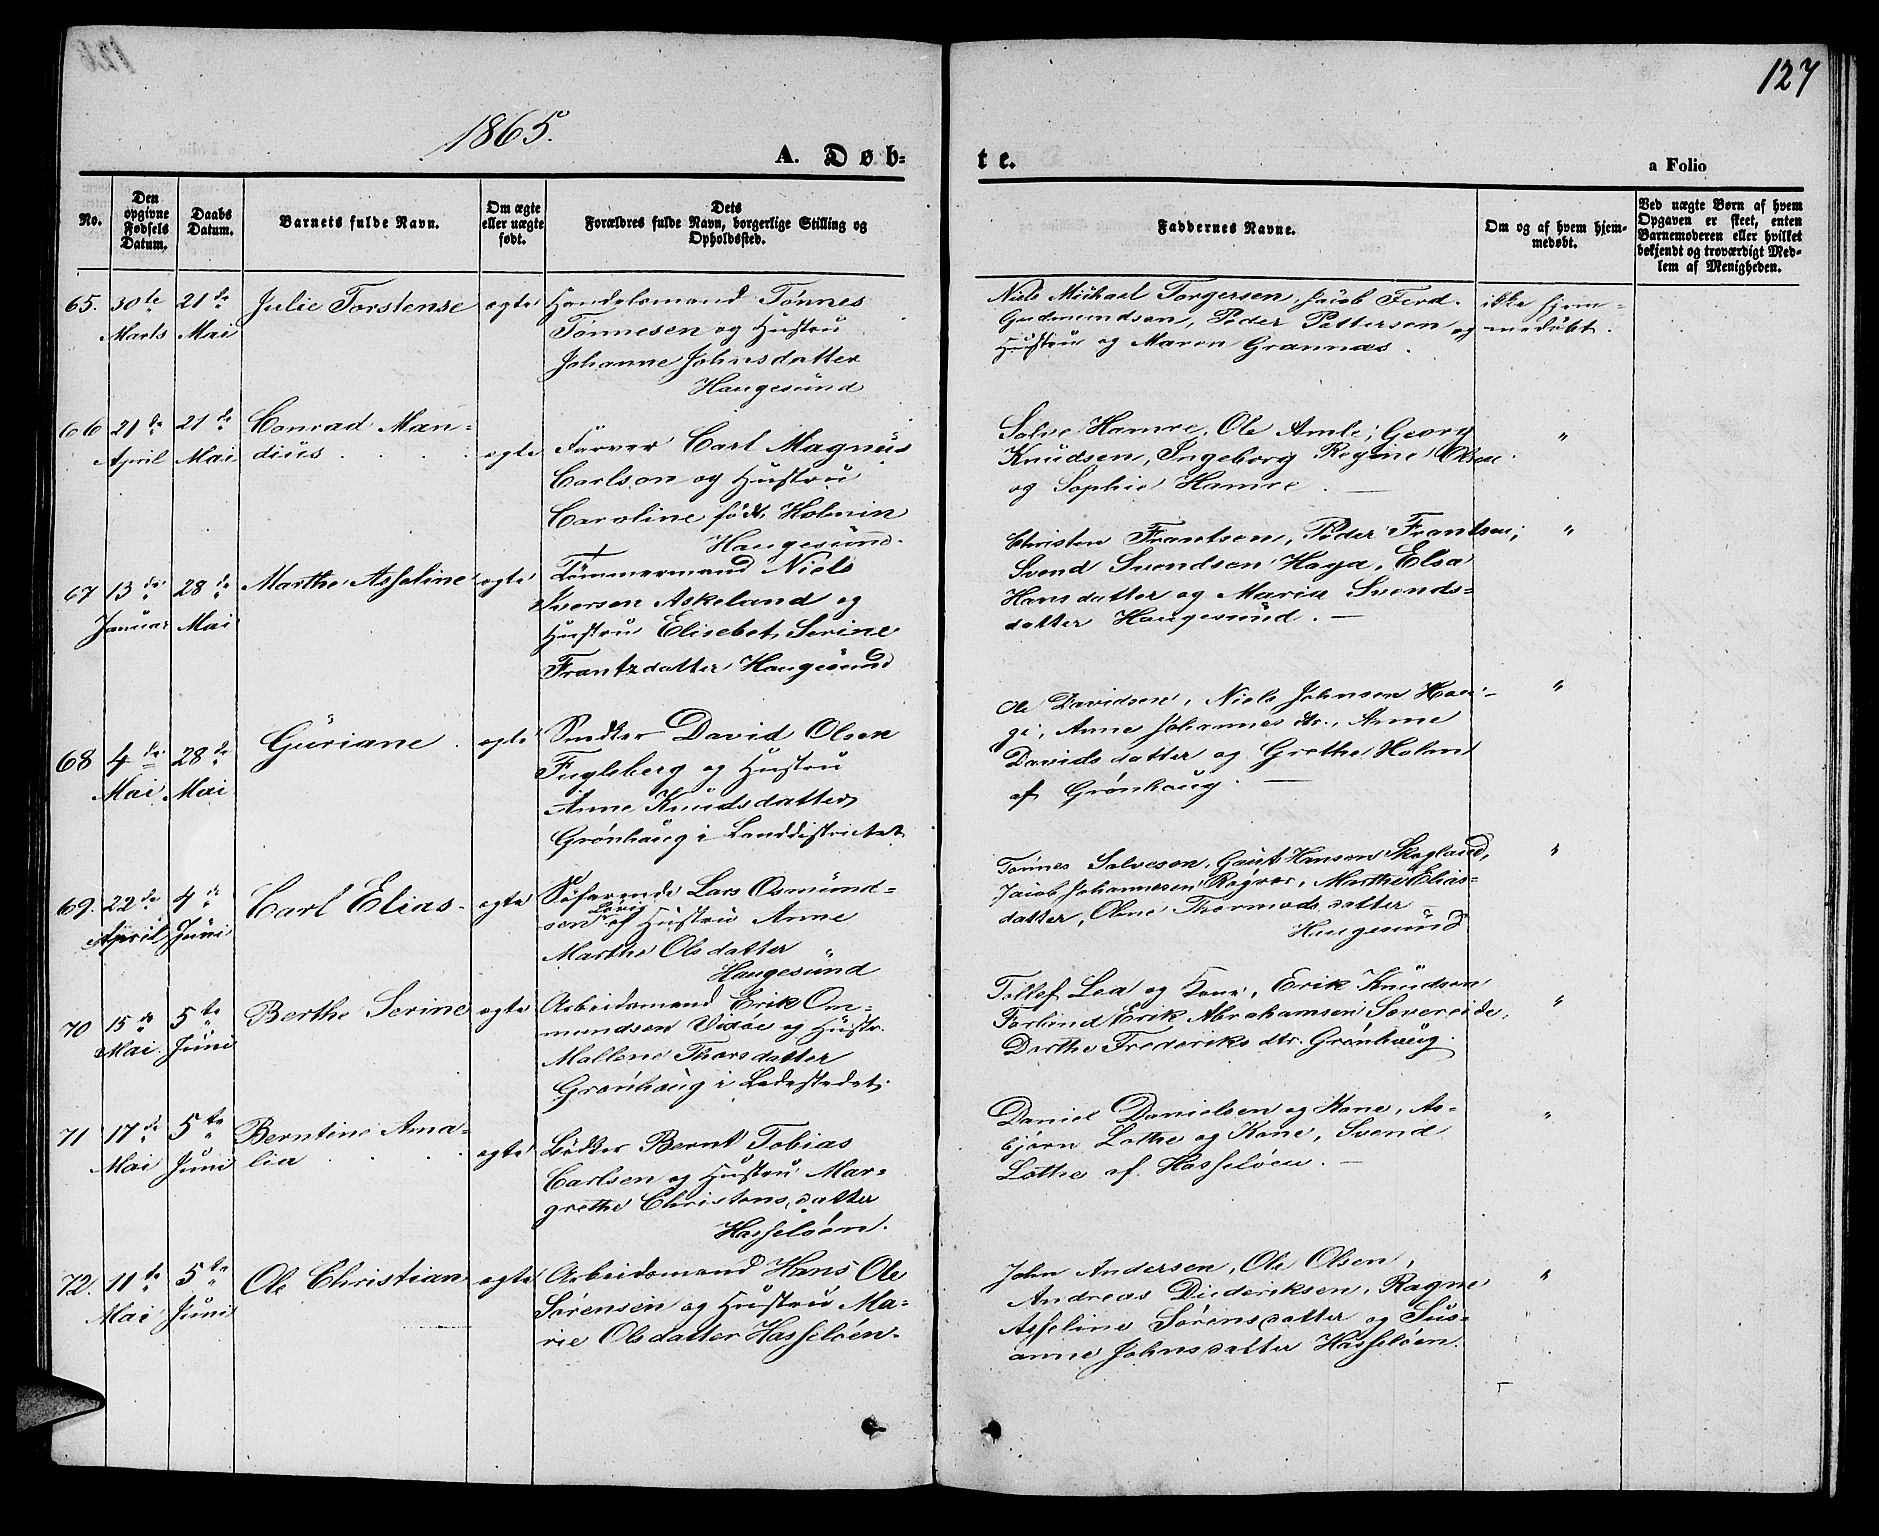 127
1865.
A. Døb-
te.
a Folio
No.
Den opgivne Fødsels Datum.
Daabs Datum.
Barnets fulde Navn.
Om ægte eller uægte født.
Dets Forældres fulde Navn, borgerlige Stilling og Opholdssted.
Faddernes Navne.
Om og af hvem hjemmedøbt.
Ved uægte Børn af hvem Opgaven er skeet, enten Barnemoderen eller hvilket bekjendt og troværdigt Medlem af Menigheden.
65. 30te Marts 21de Mai Julie Torstense ægte
Handelsmand Tønnes
Tønnesen og Hustru
Johanne Johnsdatter
Haugesund
Niels Michael Torgersen, Jacob Ferd.
Gudmundsen, Peder Pettersen og
Hustru og Maren Grannæs.
ikke hjem-
medøbt.
66 21de April 21de Mai Conrad Man-
dius ægte
Farver Carl Magnus
Carlson og Hustru
Caroline født Holmin
Haugesund.
Salve Hamre, Ole Amli, Georg
Knudsen, Ingeborg Regine Olsen
og Sophie Hamre. —
"
67 13de Januar 28de Mai Marthe Asseline ægte
Tømmermand Niels
Iversen Askeland og
Hustru Elisebet Serine
Frantzdatter Haugesund
Christen Frantsen, Peder Frantsen,
Svend Svendsen Haga, Elsa
Hansdatter og Maria Svends-
datter Haugesund. —
"
68 4de Mai 28de Mai Guriane ægte
Snedker David Olsen
Fugleberg og Hustru
Anne Knudsdatter
Grønhaug i Landdistrictet
Ole Davidsen, Niels Johnsen Hau-
ge, Anne Johannes dtr., Anne
Davidsdatter og Grethe Holm
af Grønhaug. —
"
69. 22de April 4de Juni Carl Elias ægte
Søfarende Lars Osmund-
sen af Hustru Anne
Marthe Olsdatter
Haugesund
Tønnes Salvesen, Gaut Hansen Skogland,
Jacob Johannesen Røgvær, Marthe Elias-
datter, Oline Thormodsdatter —
Haugesund
"
70 15de Mai 5te Juni Berthe Serine ægte
Arbeidsmand Erik Om-
mundsen Vixøe og Hustr.
Mallene Thorsdatter
Grønhaug i Ladestedet.
Tollef Lea og Kone, Erik Knudsen
Førlind Erik Abrahamsen Sævereide,
Dorthe Frederiks dtr. Grønhaug.
"
71 17de Mai 5te Juni Berntine Ama-
lia ægte
Bødker Bernt Tobias
Carlsen og Hustru Mar-
grethe Christensdatter
Hasseløen.
Daniel Danielsen og Kone, As-
bjørn Lothe og Kone, Svend
Lothe af Hasseløen. —
"
72. 11te Mai 5te Juni Ole Christian ægte
Arbeidsmand Hans Ole
Sørensen og Hustru Ma-
rie Olsdatter Hasseløen.
John Andersen, Ole Olsen,
Andreas Diederiksen, Ragne
Asseline Sørensdatter og Sus-
anne Johnsdatter Hasseløen.
"